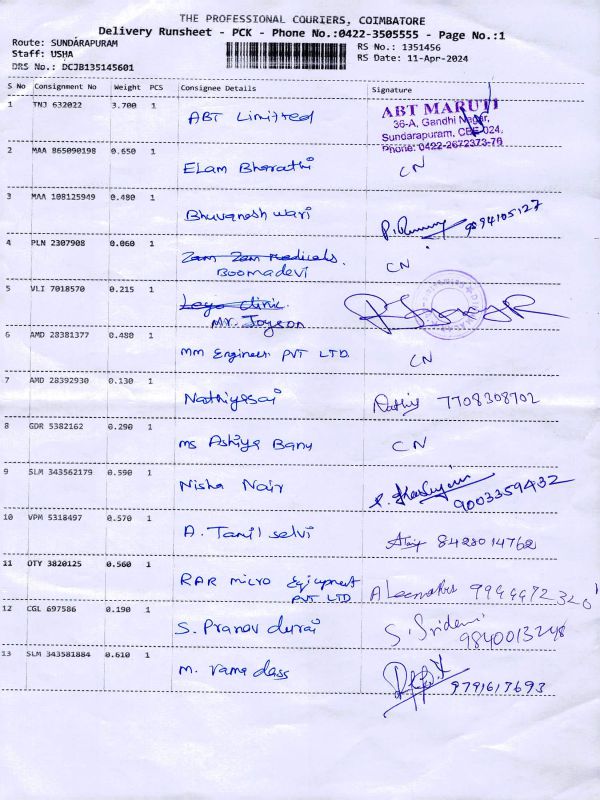 THE PROFESSIONAL COURIERS, COIMBATORE
Delivery Runsheet - PCK - Phone No.:0422-3505555 - Page No.:1
Route: SUNDARAPURAM
Staff: USHA
DRS No.: DCJB135145601
RS No.: 1351456
RS Date: 11-Apr-2024
S No Consignment No Weight PCS Consignee Details Signature
1 TNJ 632022 3.700 1 ABT Limitted
ABT MARUTI
36-A, Gandhi Nagar,
Sundarapuram, CBE-024.
Phone: 0422-2672373-76
2 MAA 865090198 0.650 1 ELam Bharathi CN
3 MAA 108125949 0.480 1 Bhuvanesh wari 9894105127
4 PLN 2307908 0.060 1 Zam Zam Medicals.
Boomadevi CN
5 VLI 7018570 0.215 1 Leyo clinic.
Mr. Joyson
6 AMD 28381377 0.480 1 mm Engineer PVT LTD. CN
7 AMD 28392930 0.130 1 Nathiyasai Nathiy 7708308702
8 GDR 5382162 0.290 1 ms Ashiya Banu CN
9 SLM 343562179 0.590 1 Nisha Nair 9003359432
10 VPM 5318497 0.570 1 A. Tamil selvi 8428014762
11 OTY 3820125 0.560 1 RAR micro Eqiupment
PVT. LTD
12 CGL 697586 0.190 1 S. Pranav durai S. Sridevi
9840013248
13 SLM 343581884 0.610 1 m. rama dass 9791617693